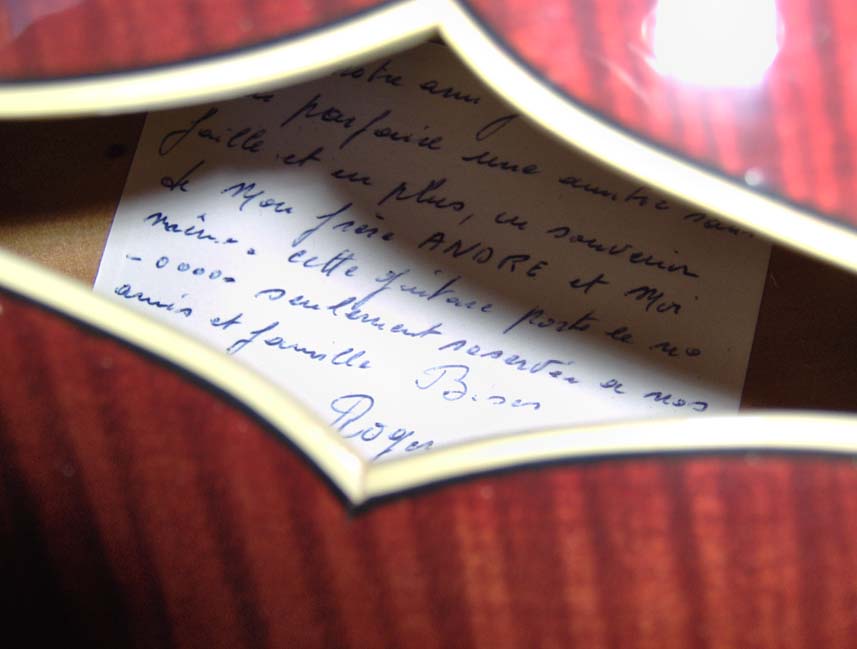 notre ami
parfaire une amitié sans
faille et en plus, en souvenir
de Mon frère ANDRE et Moi
même. cette guitare porte le no
- 00000 seulement reservée a nos
amis et famille Bises
Roger